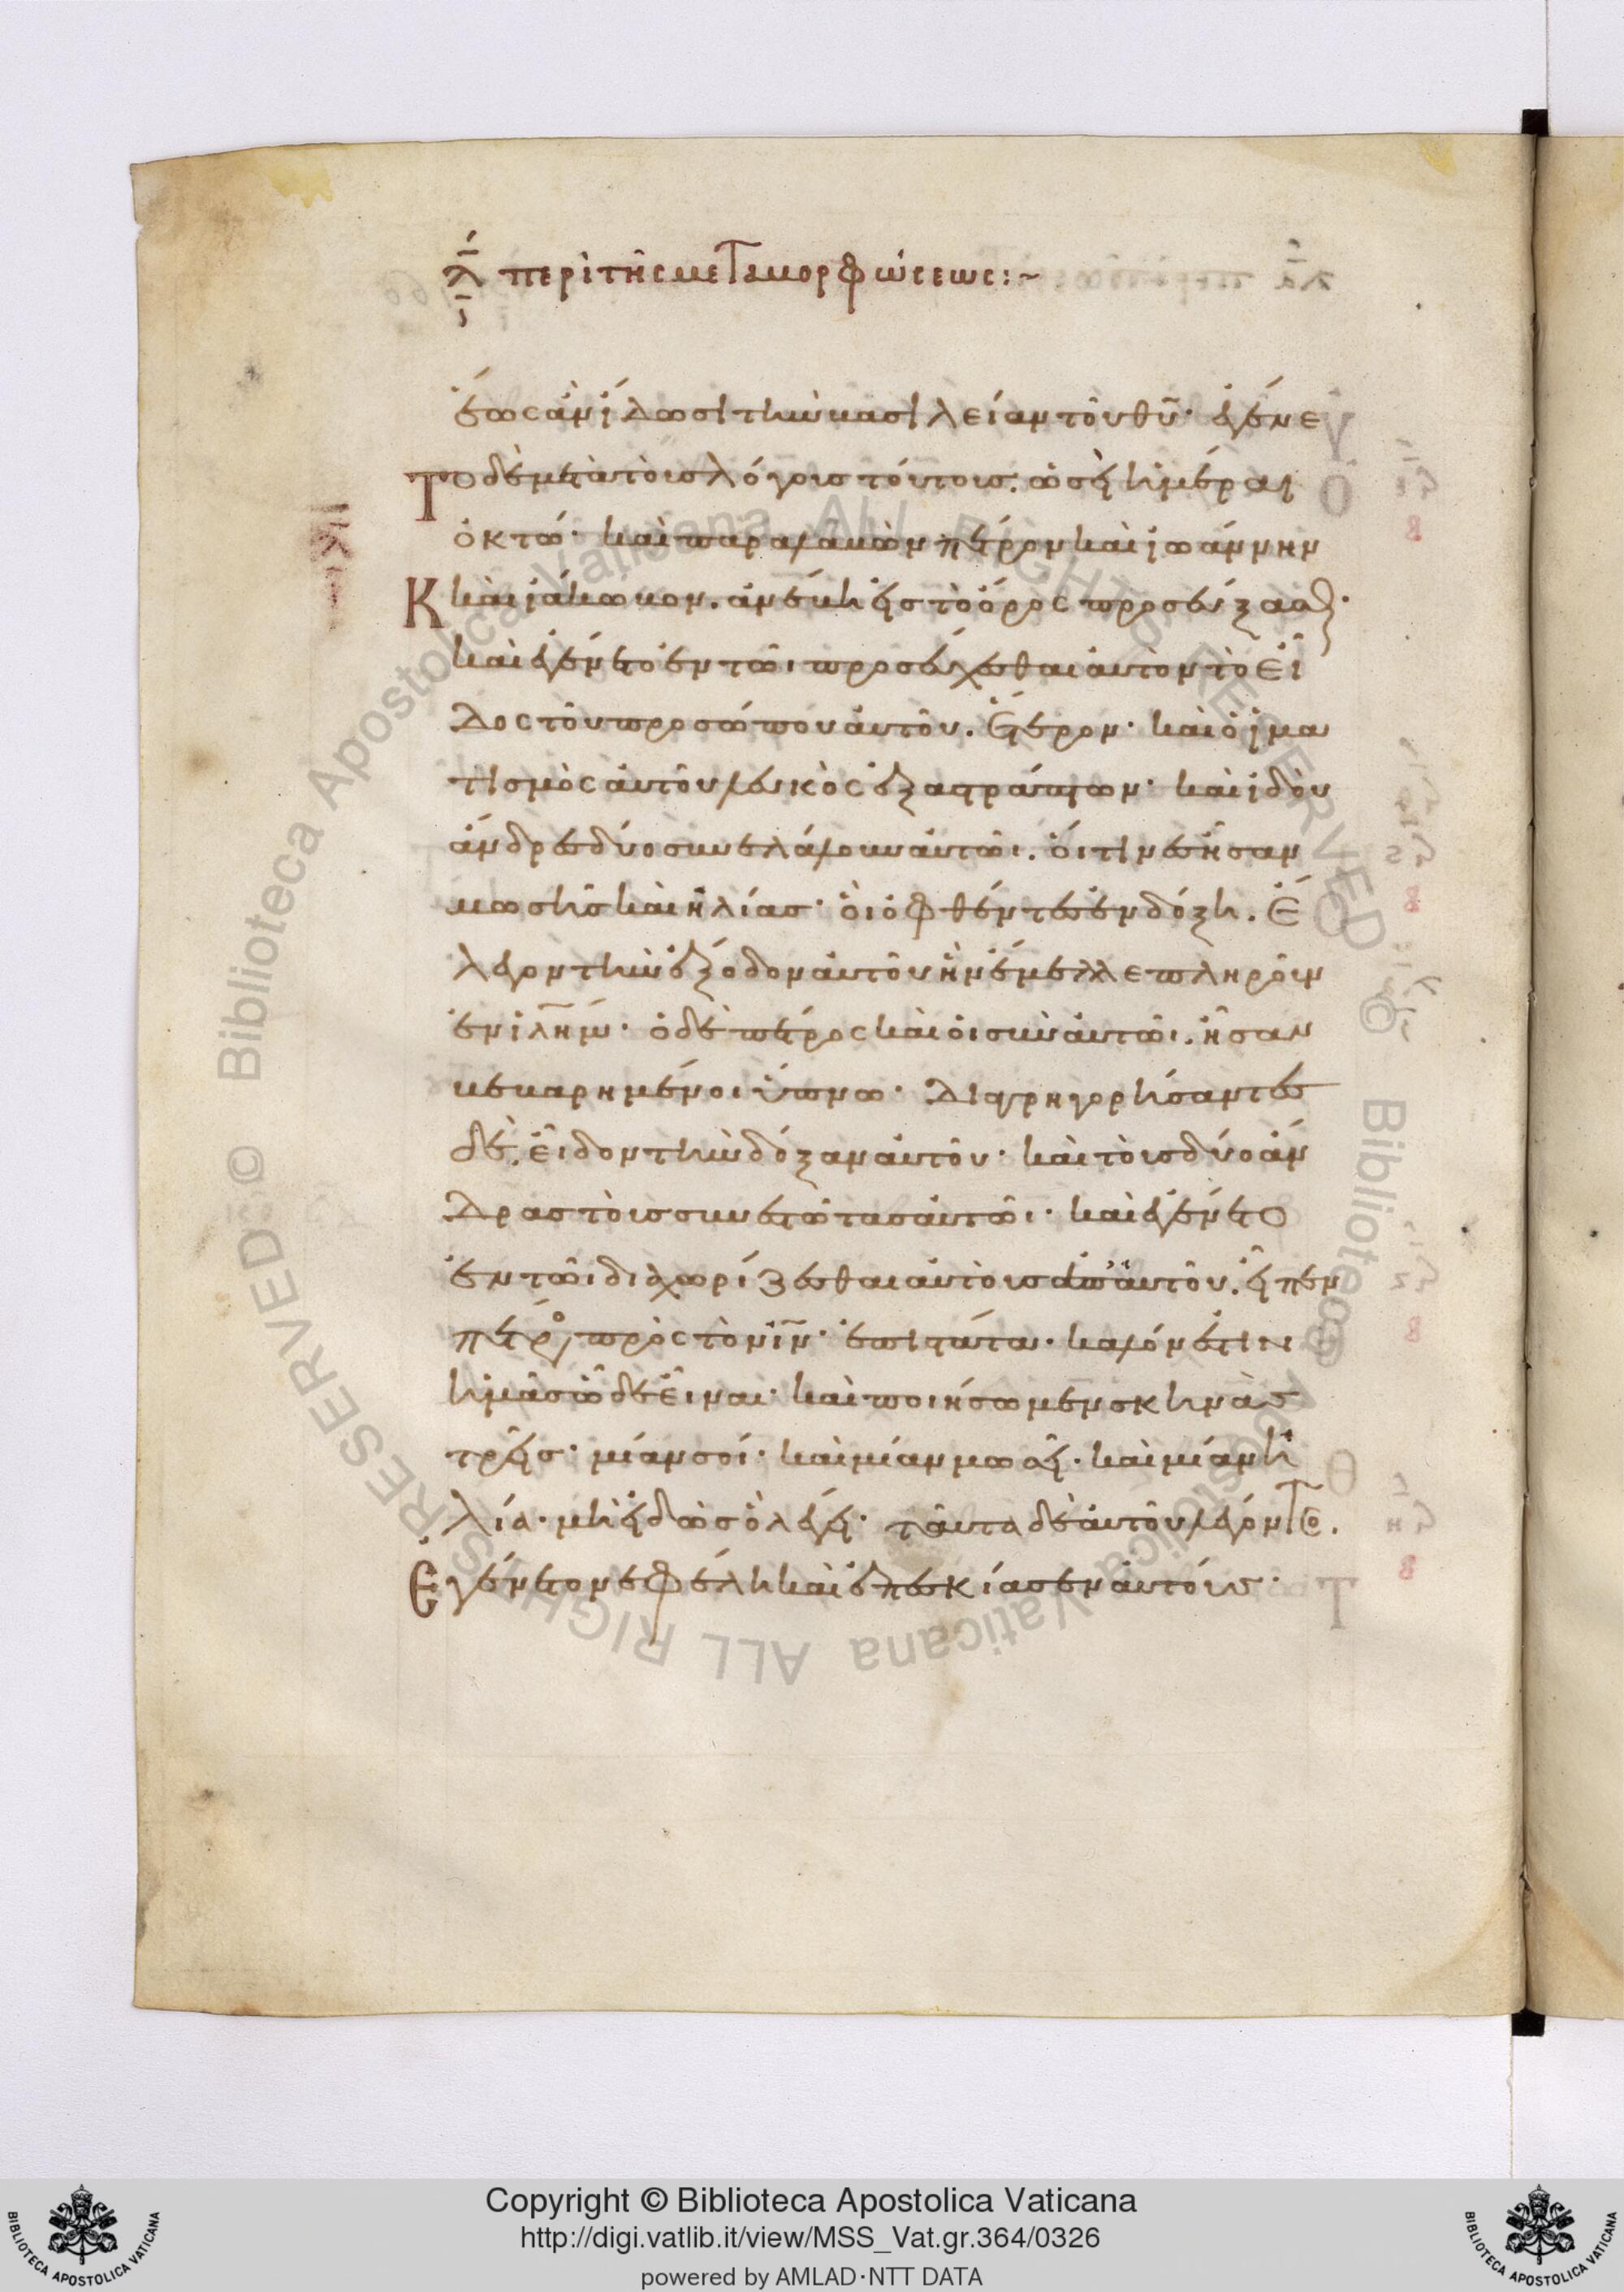 λ̅ περὶ τῆς μεταμορφώσεως :~
ἕως ἂν ἴδωσι τὴν βασιλείαν τοῦ θ̅υ̅· ἐγένε
το δὲ μετὰ τοὺς λόγους τούτους. ὡσεὶ ἡμέραι
ὀκτώ· καὶ παραλαβὼν πέτρον καὶ ἰωάννην
καὶ ἰάκωβον. ἀνέβη εἰς τὸ ὄρος προσεύξασθαι·
καὶ ἐγένετο ἐν τῶι προσεύχεσθαι αὐτὸν τὸ εἶ
δος τοῦ προσώπου αὐτοῦ. ἕτερον· καὶ ὁ ἱμα
τισμὸς αὐτοῦ λευκὸς ἐξαστράπτων· καὶ ἰδοὺ
ἄνδρες δύο συνελάλουν αὐτῶι. οἵτινες ἦσαν
μωσῆς καὶ ἠλίας· οἳ ὀφθέντες ἐν δόξη. ἔ
λεγον τὴν ἔξοδον αὐτοῦ ἣν ἔμελλε πληροῦν
ἐν ἰ̅λ̅η̅μ̅· ὁ δὲ πέτρος καὶ οἱ σὺν αὐτῶι. ἦσαν
βεβαρημένοι ὕπνω· διαγρηγορήσαντες
δὲ. εἶδον τὴν δόξαν αὐτοῦ· καὶ τοὺς δύο ἄν
δρας τοὺς συνεστῶτας αὐτῶι· καὶ ἐγένετο
ἐν τῶι διαχωρίζεσθαι αὐτοὺς ἀπ' αὐτοῦ. εἶπεν
πέτρος πρὸς τὸν ι̅ν̅· ἐπιστάτα· καλόν ἐστιν
ἡμᾶς ὧδε εἶναι· καὶ ποιήσωμεν σκηνὰς
τρεῖς· μίαν σοί· καὶ μίαν μωσεῖ· καὶ μίαν ἠ
λία· μὴ εἰδὼς ὃ λέγει· ταῦτα δὲ αὐτοῦ λέγοντο.
Ἐγένετο νεφέλη καὶ ἐπεσκίασεν αὐτούς·
Copyright © Biblioteca Apostolica Vaticana
http://digi.vatlib.it/view/MSS_Vat.gr.364/0326
powered by AMLAD·NTT DATA
BIBLIOTECA APOSTOLICA VATICANA
BIBLIOTECA APOSTOLICA VATICANA